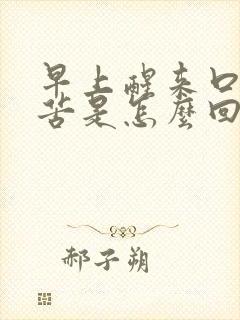 早上醒来口
苦是怎麼回
郝子朔